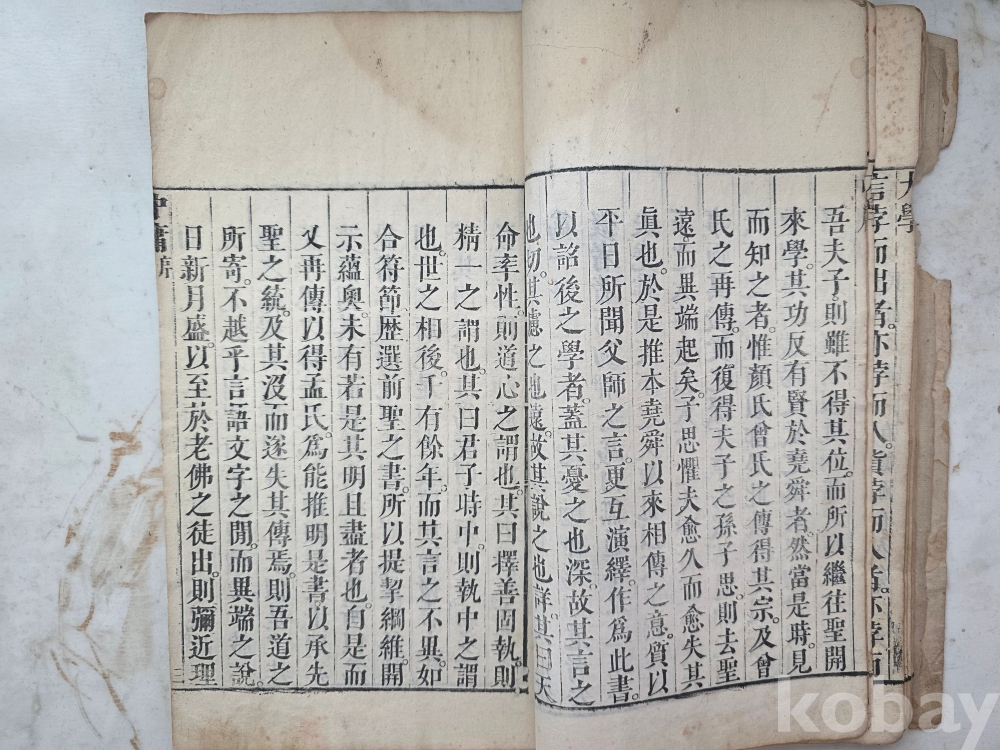 大學
信悖而出者。亦悖而入。貨悖而入者。亦悖而
吾夫子。則雖不得其位。而所以繼往聖開
來學。其功反有賢於堯舜者。然當是時。見
而知之者。惟顏氏曾氏之傳得其宗。及曾
氏之再傳。而復得夫子之孫子思。則去聖
遠。而異端起矣。子思懼夫愈久而愈失其
眞也。於是推本堯舜以來相傳之意。質以
平日所聞父師之言。更互演繹。作爲此書。
以詔後之學者。蓋其憂之也深。故其言之
也切。其慮之也遠。故其說之也詳。其曰天
命率性。則道心之謂也。其曰擇善固執。則
精一之謂也。其曰君子時中。則執中之謂
也。世之相後。千有餘年。而其言之不異。如
合符節。歷選前聖之書。所以提挈綱維。開
示蘊奧。未有若是其明且盡者也。自是而
又再傳以得孟氏。爲能推明是書。以承先
聖之統。及其沒而遂失其傳焉。則吾道之
所寄。不越乎言語文字之閒。而異端之說。
日新月盛。以至於老佛之徒出。則彌近理
中庸序
三
kobay